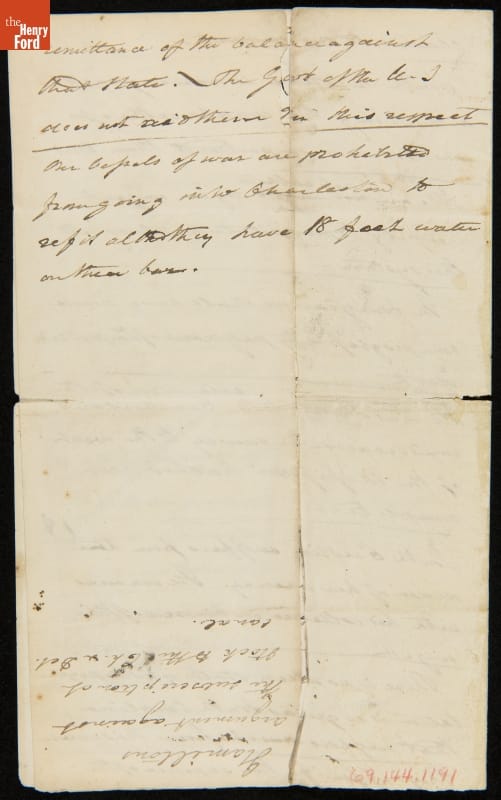 the
Henry
Ford
remittance of the balance against
that State. The Govt of the U.S
does not aid them in this respect
Our vessels of war are prohibited
from going into Charleston to
refit altho they have 18 feet water
on their bar.
Hamiltons
argument against
the subscription of
Stock to the Ch. & Del.
canal.
69.144.1191